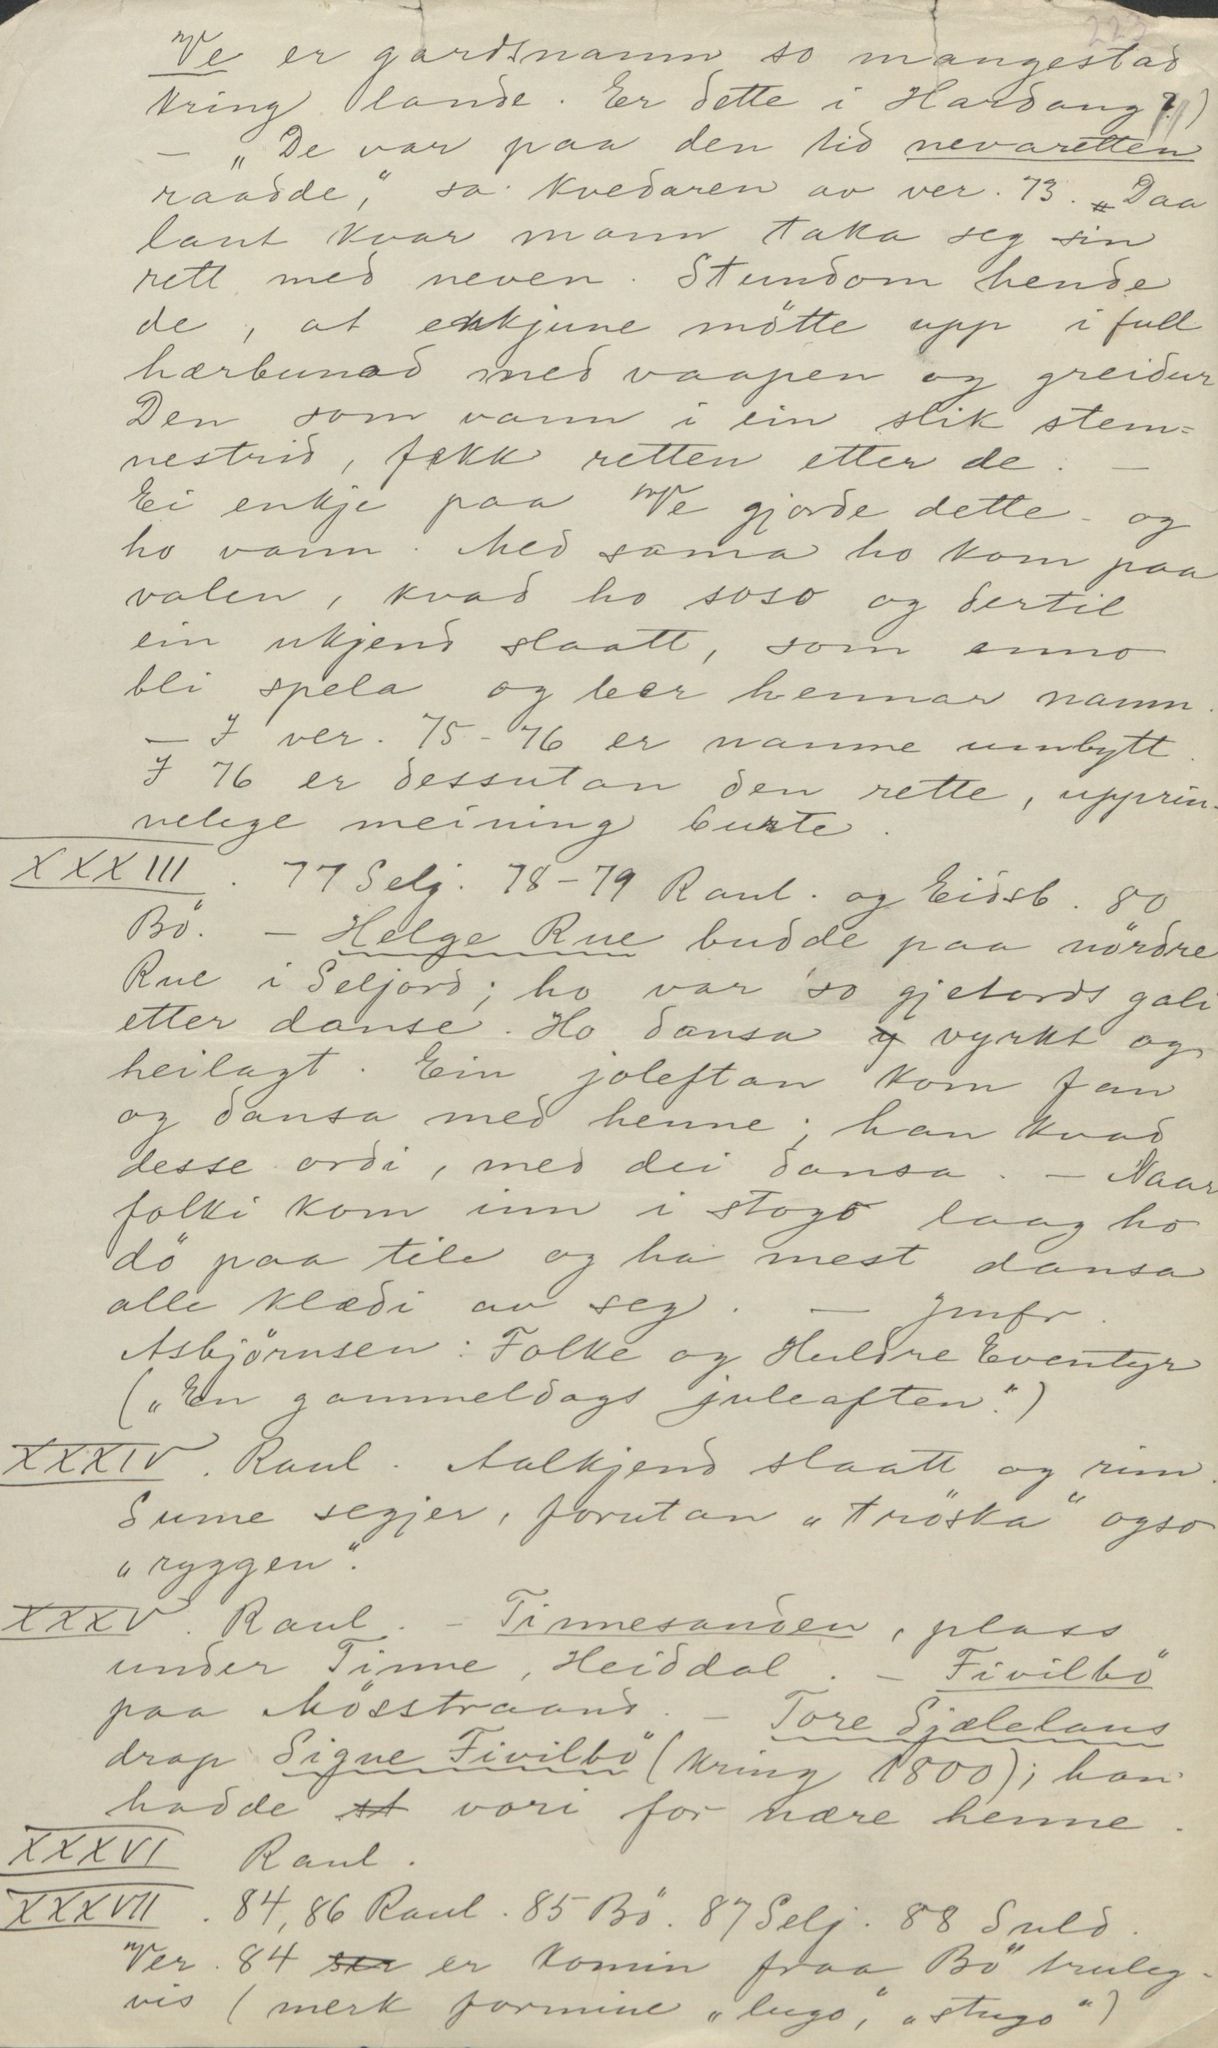 223
Ve er gardsnamn so mangestad
kring lande. Er dette i Hardang?)
— „De var paa den tid nevaretten
raadde,“ sa kvedaren av ver. 73. „Daa
laut kvar mann taka seg sin
rett med neven. Stundom hende
de, at enkjune mötte upp i full
hærbunad med vaapen og greidur
Den som vann i ein slik stem=
nestrid, fekk retten etter de. —
Ei enkje paa Ve gjorde dette - og
ho vann. Med sama ho kom paa
valen, kvad ho soso og dertil
ein ukjend slaatt, som enno
bli spela og ber hennar namn.
— I ver. 75-76 er namne umbytt.
I 76 er dessutan den rette, upprin-
nelege meining burte.
XXXIII. 77 Selj. 78-79 Raul. og Eidsb. 80
Bö. — Helge Rue budde paa nördre
Rue i Seljord; ho var so gjetords gali
etter danse. Ho dansa y vyrkt og
heilagt. Ein joleftan kom fan
og dansa med henne; han kvad
desse ordi, med dei dansa. — Naar
folki kom inn i stogo laag ho
dö paa tile og ha mest dansa
alle klædi av seg. — Jmfr.
Asbjörnsen: Folke og Huldre Eventyr
(„En gammeldags juleaften“.)
XXXIV. Raul. Aalkjend slaatt og rim.
Sume segjer, forutan „tröska“ ogso
„ryggen“.
XXXV. Raul. - Tinnesanden, plass
under Tinne, Heiddal. - Fivilbö
paa Mösstraand. - Tore Sjælelaus
drap Signe Fivilbö (kring 1800); han
hadde st vori for nære henne.
XXXVI Raul.
XXXVII. 84, 86 Raul. 85 Bö. 87 Selj. 88 Suld.
Ver. 84 er komin fraa Bö truleg-
vis (merk formine „lugo,“ „stugo“)